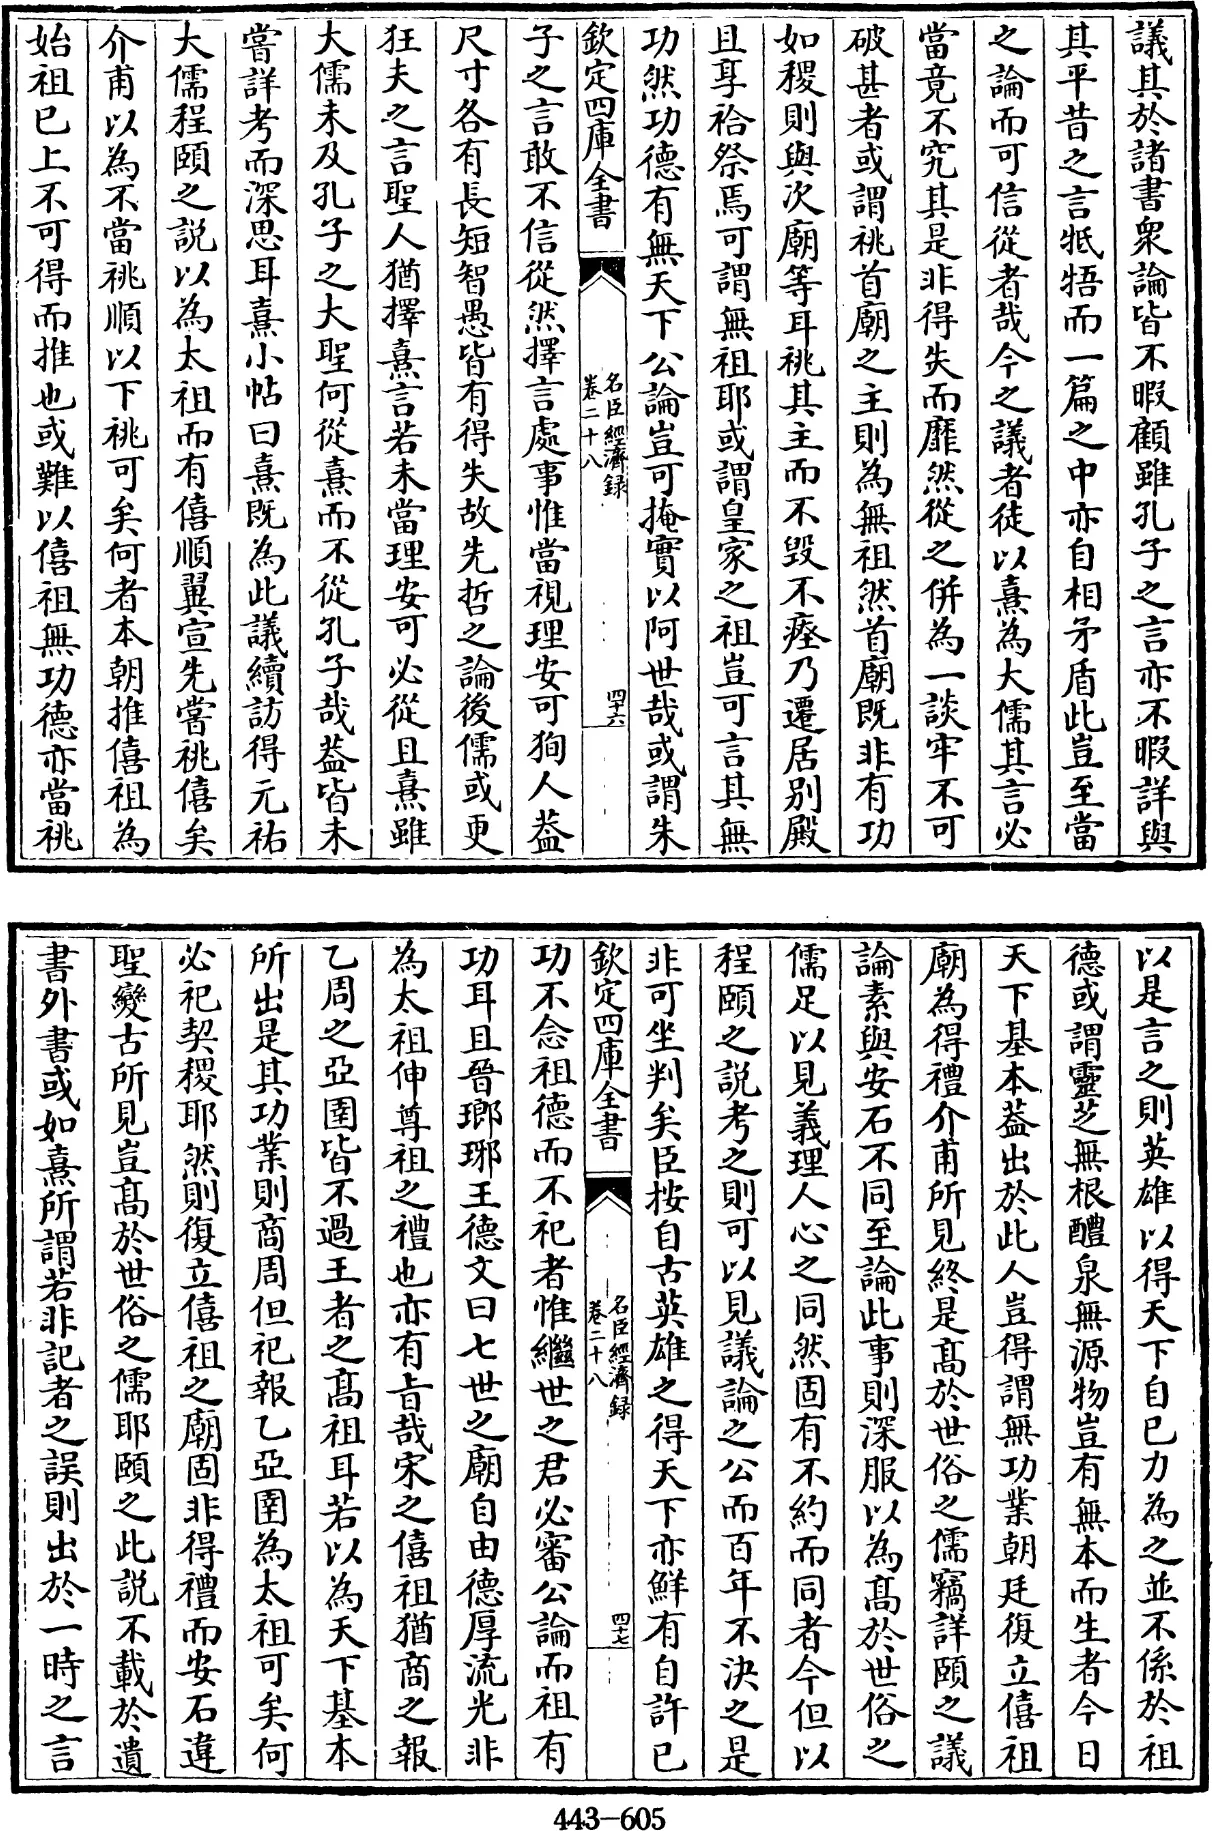 議其於諸書衆論皆不暇顧雖孔子之言亦不暇詳與
其平昔之言牴牾而一篇之中亦自相矛盾此豈至當
之論而可信從者哉今之議者徒以熹為大儒其言必
當竟不究其是非得失而靡然從之併為一談牢不可
破甚者或謂祧首廟之主則為無祖然首廟既非有功
如稷則與次廟等耳祧其主而不毀不瘞乃遷居別殿
且享祫祭焉可謂無祖耶或謂皇家之祖豈可言其無
功然功德有無天下公論豈可掩實以阿世哉或謂朱
欽定四庫全書
名臣經濟録
卷二十八
四十六
子之言敢不信從然擇言處事惟當視理安可狥人葢
尺寸各有長短智愚皆有得失故先哲之論後儒或更
狂夫之言聖人猶擇熹言若未當理安可必從且熹雖
大儒未及孔子之大聖何從熹而不從孔子哉葢皆未
嘗詳考而深思耳熹小帖曰熹既為此議續訪得元祐
大儒程頤之說以為太祖而有僖順翼宣先嘗祧僖矣
介甫以為不當祧順以下祧可矣何者本朝推僖祖為
始祖已上不可得而推也或難以僖祖無功德亦當祧
以是言之則英雄以得天下自已力為之並不係於祖
德或謂靈芝無根醴泉無源物豈有無本而生者今日
天下基本葢出於此人豈得謂無功業朝廷復立僖祖
廟為得禮介甫所見終是髙於世俗之儒竊詳頤之議
論素與安石不同至論此事則深服以為髙於世俗之
儒足以見義理人心之同然固有不約而同者今但以
程頤之說考之則可以見議論之公而百年不決之是
非可坐判矣臣按自古英雄之得天下亦鮮有自許已
欽定四庫全書
名臣經濟録
卷二十八
四十七
功不念祖德而不祀者惟繼世之君必審公論而祖有
功耳且晉瑯琊王德文曰七世之廟自由德厚流光非
為太祖伸尊祖之禮也亦有㫖哉宋之僖祖猶商之報
乙周之亞圉皆不過王者之髙祖耳若以為天下基本
所出是其功業則商周但祀報乙亞圉為太祖可矣何
必祀契稷耶然則復立僖祖之廟固非得禮而安石違
聖變古所見豈髙於世俗之儒耶頤之此說不載於遺
書外書或如熹所謂若非記者之誤則出於一時之言
443-605